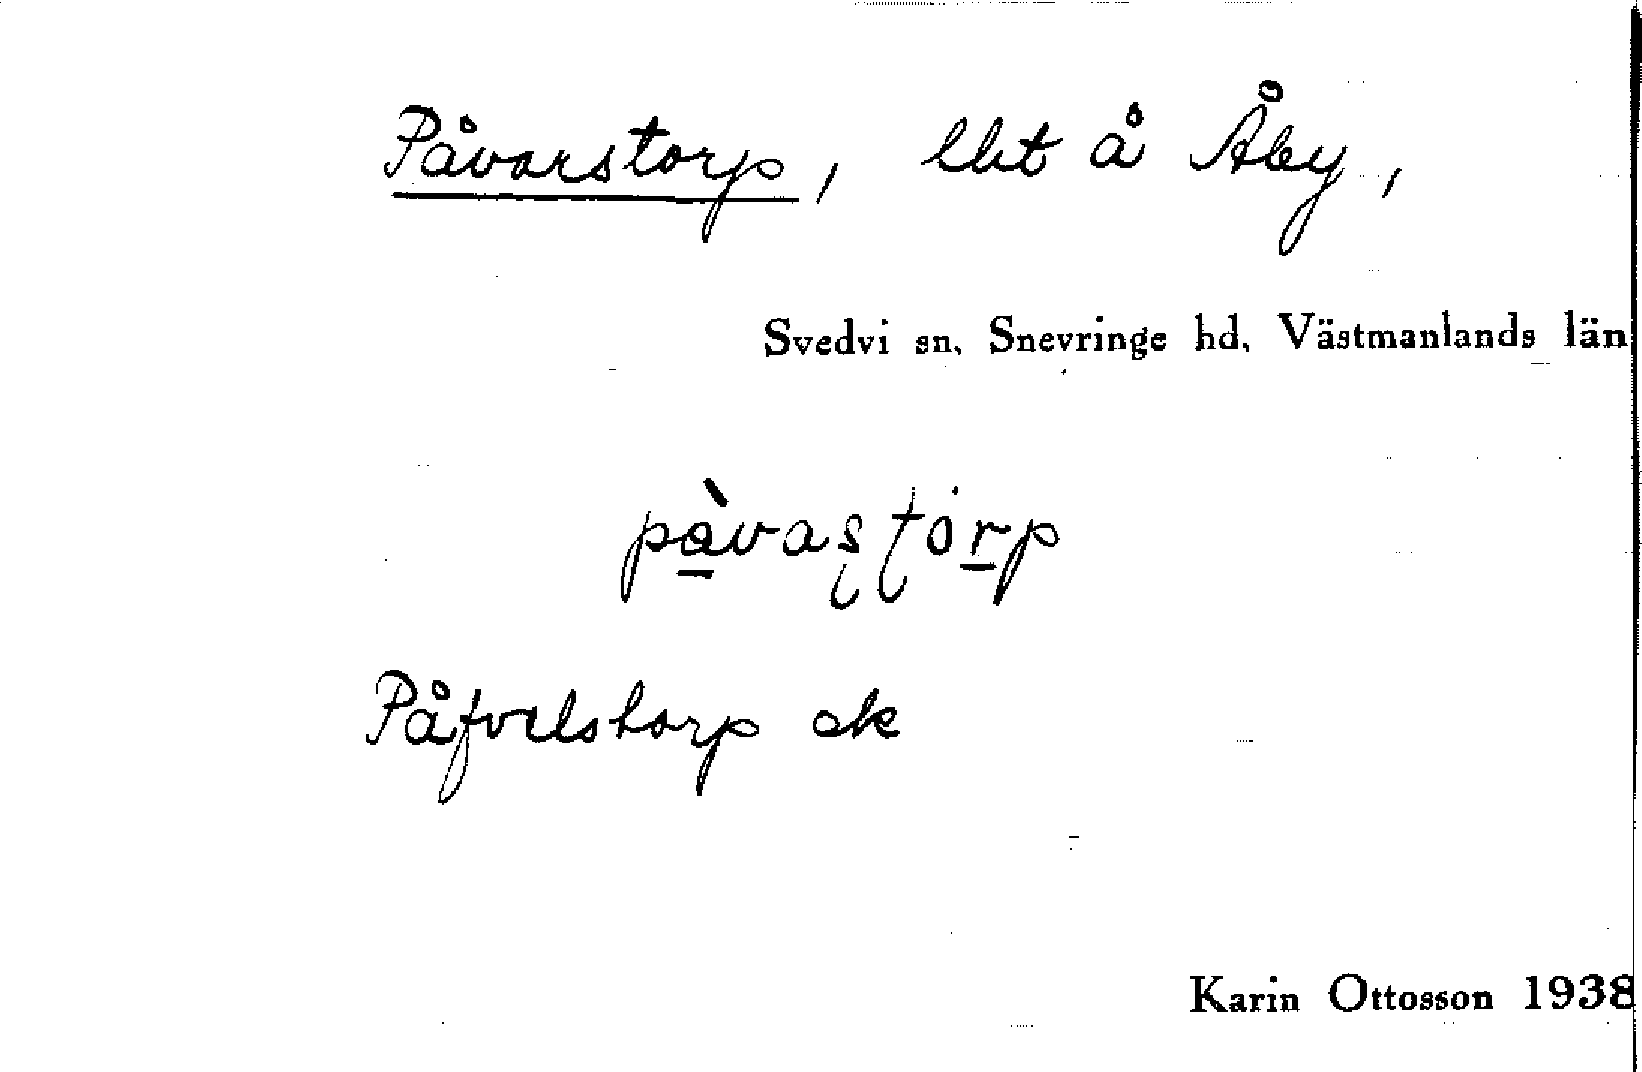 Påvarstorp, lht å Åby,
Svedvi sn, Snevringe hd, Västmanlands län
pàvaʂʈorp
Påfvelstorp ek
Karin Ottosson 1938